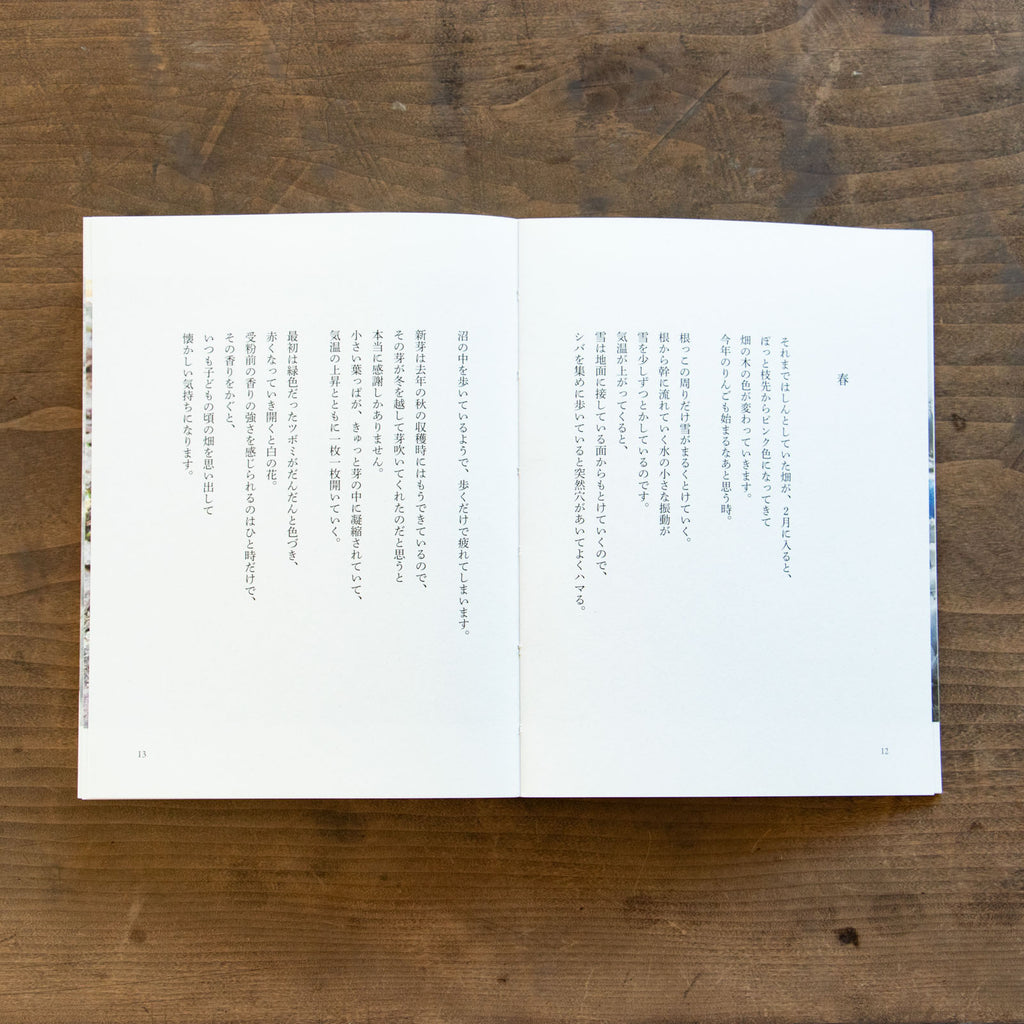 春
それまではしんとしていた畑が、2月に入ると、
ぽっと枝先からピンク色になってきて
畑の木の色が変わっていきます。
今年のりんごも始まるなあと思う時。
根っこの周りだけ雪がまるくとけていく。
根から幹に流れていく水の小さな振動が
雪を少しずつとかしているのです。
気温が上がってくると、
雪は地面に接している面からもとけていくので、
シバを集めに歩いていると突然穴があいてよくハマる。
12
沼の中を歩いているようで、歩くだけで疲れてしまいます。
新芽は去年の秋の収穫時にはもうできているので、
その芽が冬を越して芽吹いてくれたのだと思うと
本当に感謝しかありません。
小さい葉っぱが、きゅっと芽の中に凝縮されていて、
気温の上昇とともに一枚一枚開いていく。
最初は緑色だったツボミがだんだんと色づき、
赤くなっていき開くと白の花。
受粉前の香りの強さを感じられるのはひと時だけで、
その香りをかぐと、
いつも子どもの頃の畑を思い出して
懐かしい気持ちになります。
13